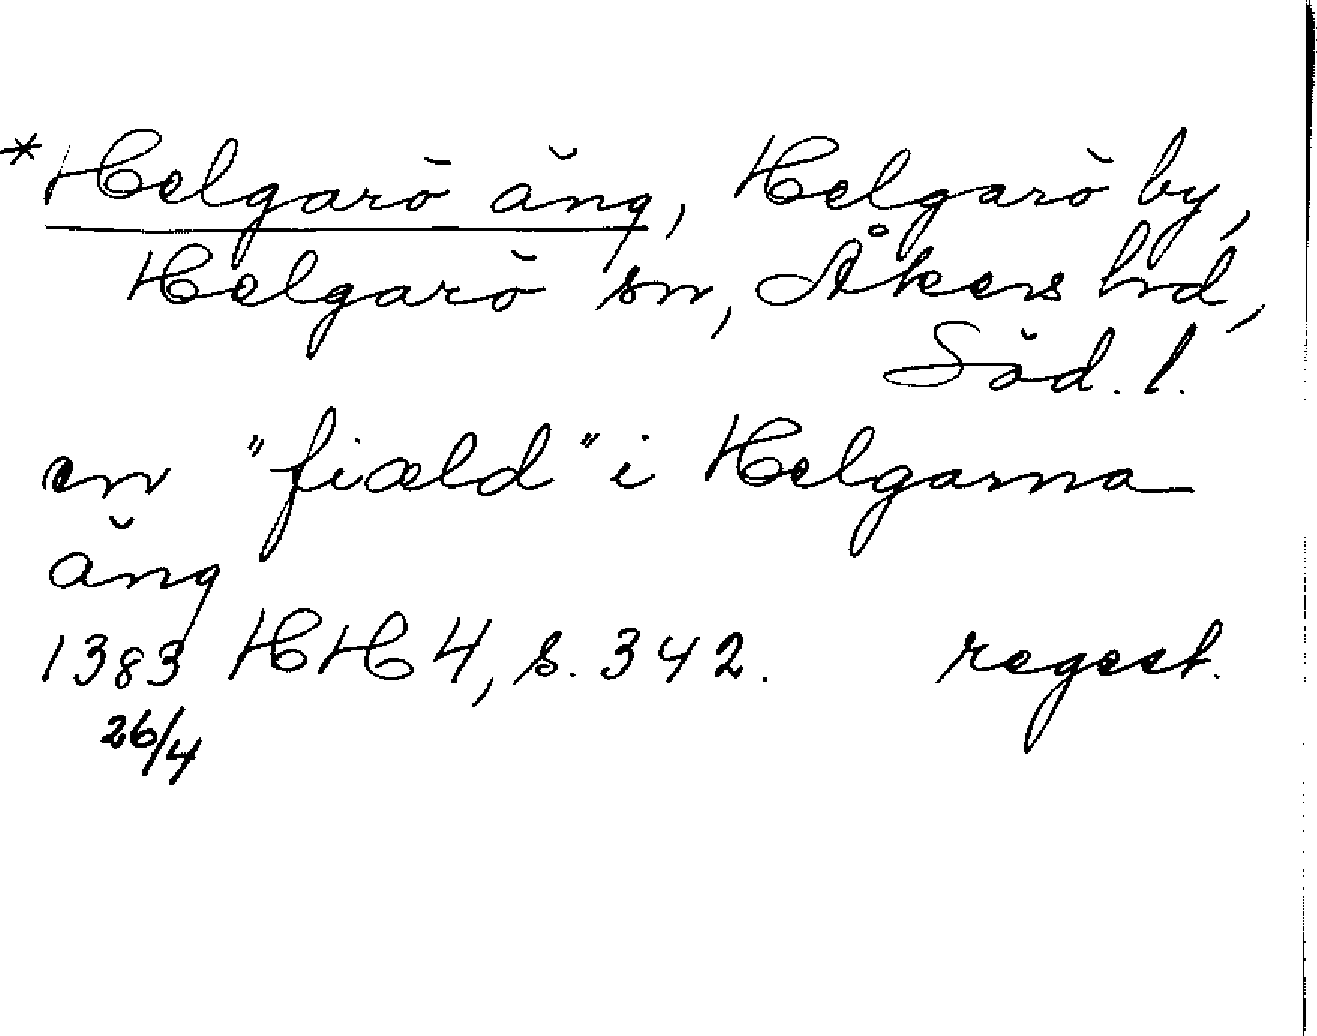 *Helgarö äng, Helgarö by,
Helgarö sn, Åkers hd,
Söd. l.
en "fiæld" i Helgarna
äng
1383 HH 4, s. 342. regest.
26/4